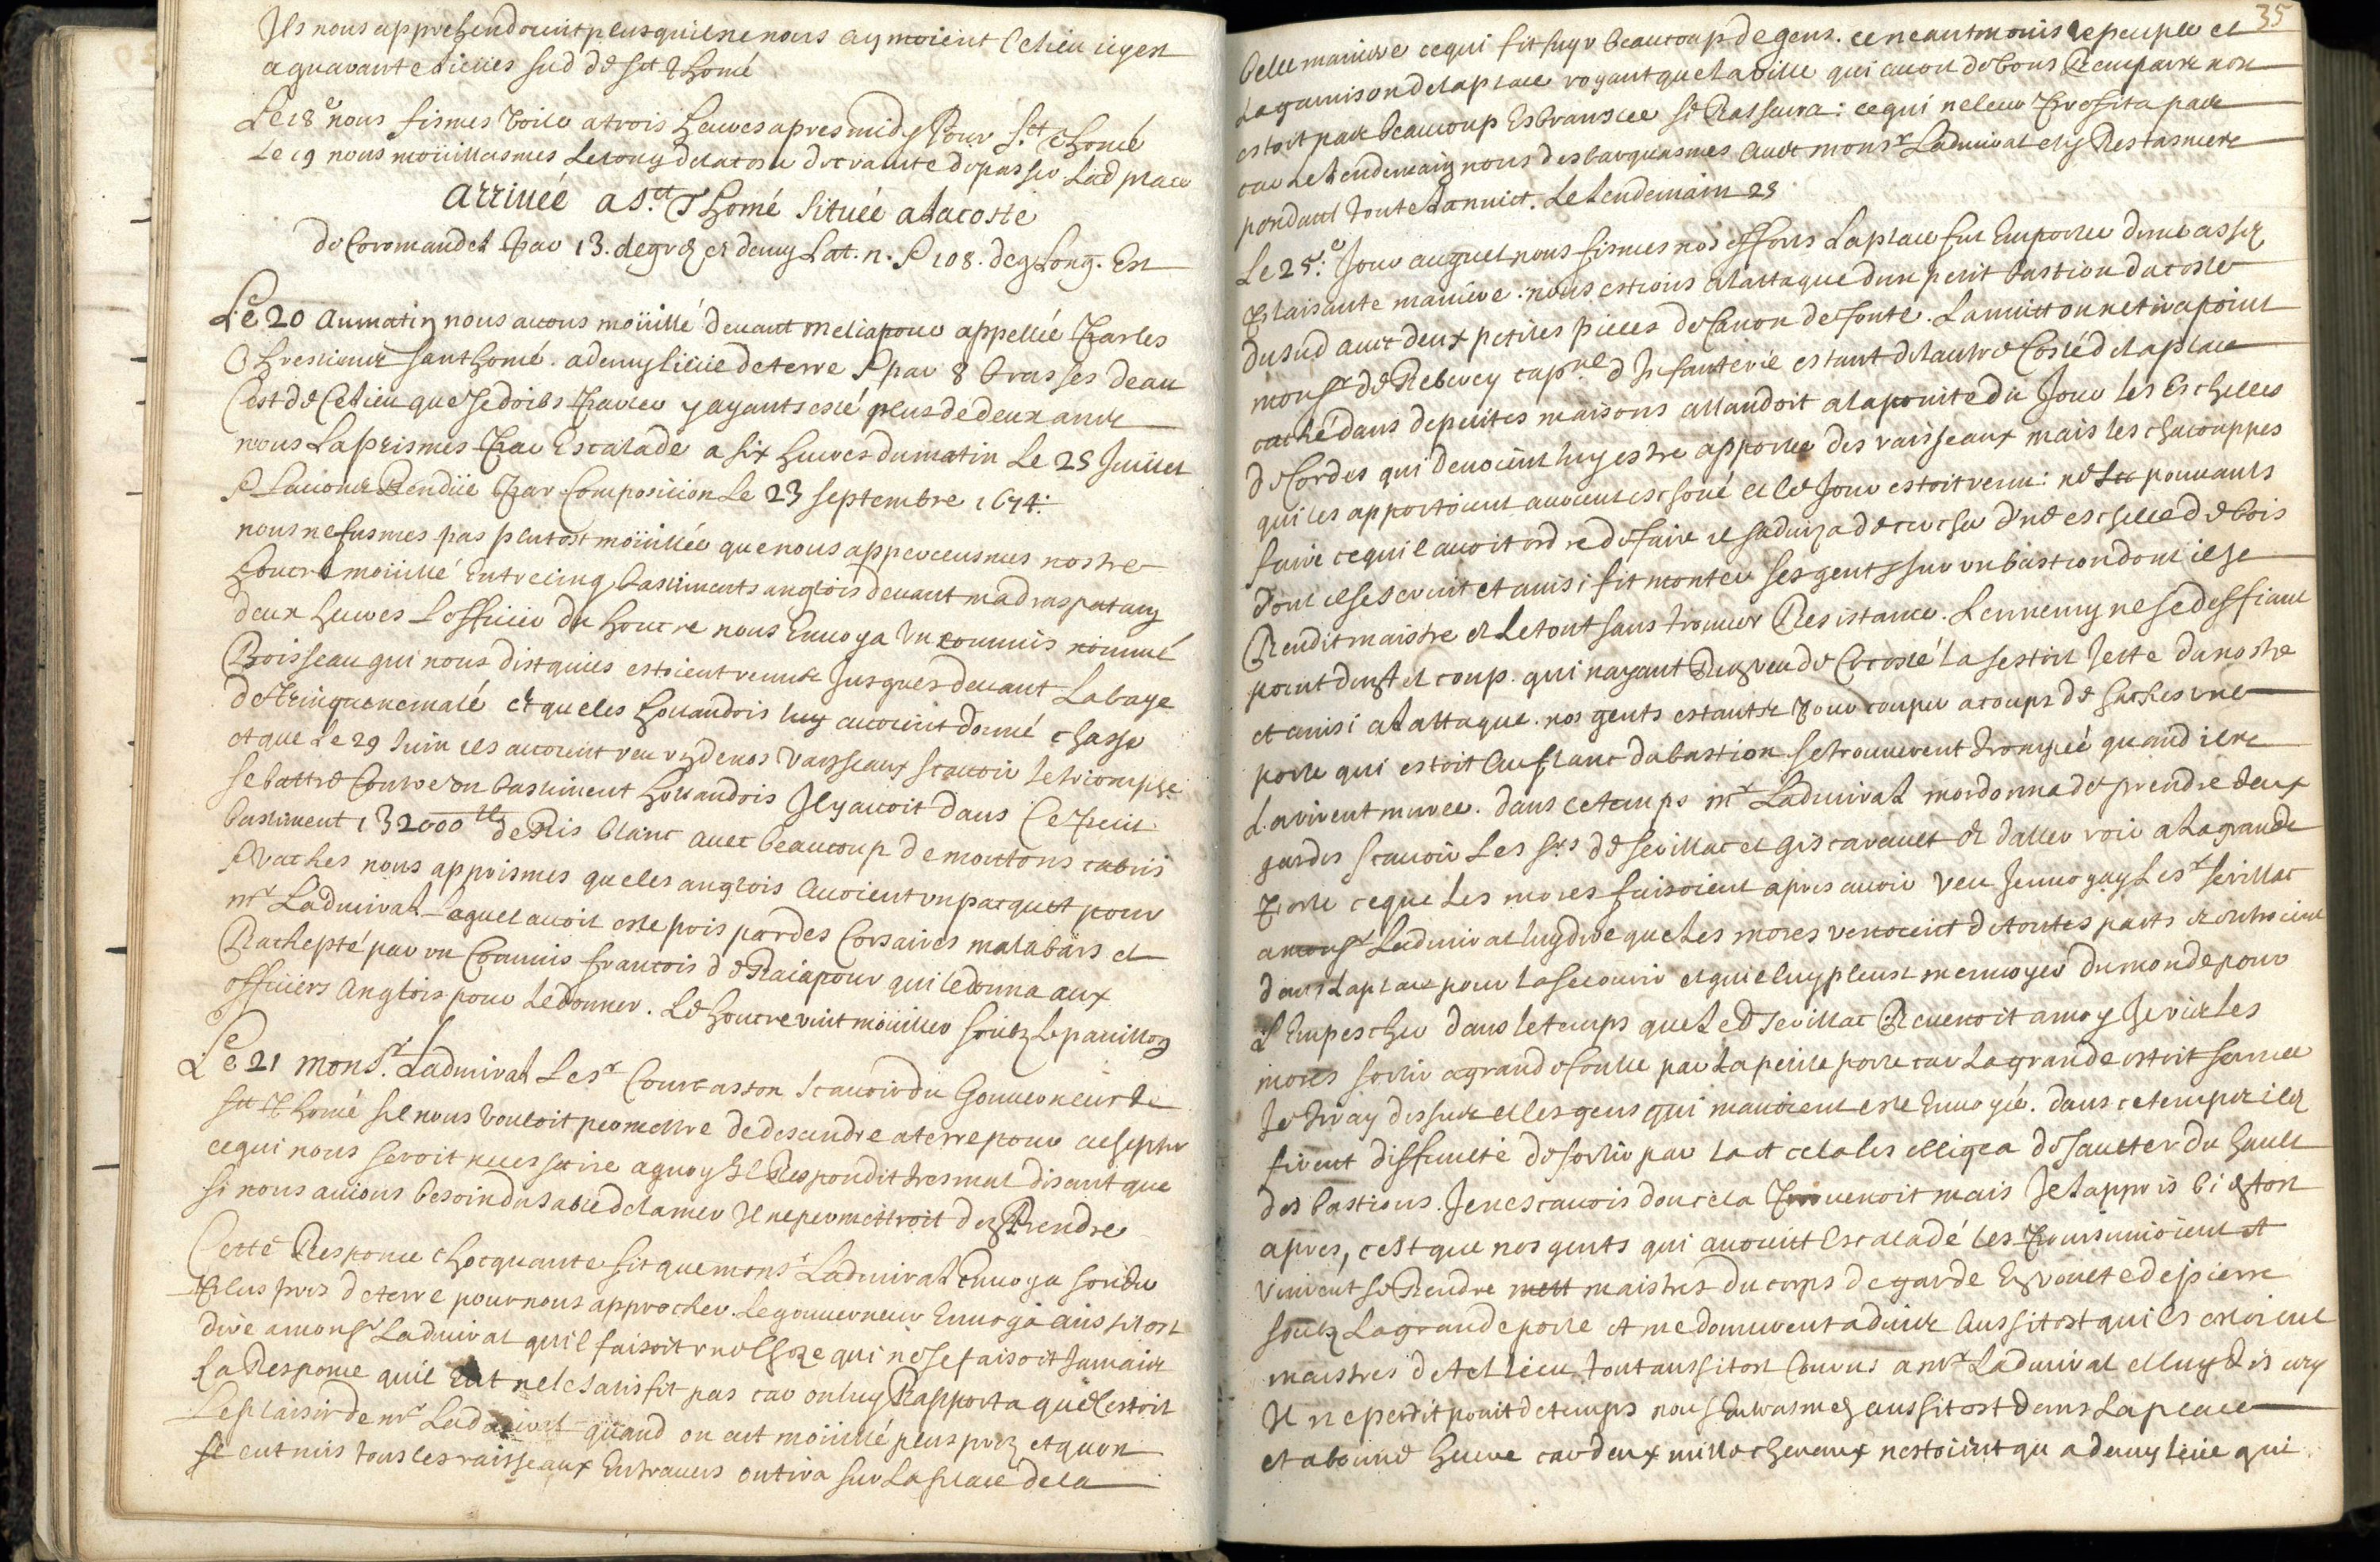 Ils nous apprehendoient plus quils ne nous aymoient Ce lieu icy est
a quarante lieües sud de sct Thomé
Le 18e nous fismes voile a trois heures apres midy Pour sct Thomé
Le 19 nous moüillasmes Le long de la coste de crainte de passer Lad place
arriueé a S.ct Thomé Située a la coste
de Coromandel Par 13. degrez et demy Lat. n. & 108. deg Long. Est
Le 20 au matin nous auons moüillé deuant meliapour appellée Par les
Chrestiens Sant homé. a demy lieüe de terre & par 8 brasses deau
C'est de Ce lieu que Je doibs Parler y ayants esté plus de deux ans
nous La prismes Par Escalade a six heures du matin Le 25 Juillet
& Lauons Rendüe Par Composition Le 23 septembre 1674.
nous ne fusmes pas plutost moüillés que nous apperceusmes nostre
houcre moüillé Entre cinq bastiments anglois deuant madraspatan
deux heures L'officier du houcre nous Enuoya Un commis nommé
Boisseau qui nous dist quils estoient venus Jusques deuant La baye
de Trinquenemalé et que les hollandois luy auoient donné chasse
et que Le 29 Juin ils auoient veu vn de nos Vaisseaux scauoir le triomphe
se battre Contre vn bastiment hollandois Il y auoit dans Ce Petit
bastiment 132000 tt de Ris blanc auec beaucoup de moutons cabris
& vaches nous apprismes que les anglois Auoient vn pacquet pour
mr Ladmiral lequel auoit esté pris par des Corsaires malabars et
Rachepté par vn Commis francois de Raiapour qui le donna aux
officiers Anglois pour Le donner. Le houcre vint moüiller soubz Le pauillon
Le 21 Monsr. Ladmiral Le sr Courcasson scauoir du Gouuerneur de
sct Thomé sil nous Vouloit promettre de descendre a terre pour
ce qui nous seroit necessaire a quoy Il Respondit tres mal disant que
si nous auions besoin du sable de la mer Il ne permettroit den Prendre
Cette Responce chocquante fit que monsr Ladmiral Enuoya
Plus pres de terre pour nous approcher. Le gouuerneur Enuoya aussitost
dire a monsr Ladmiral quil faisoit vne Chose qui ne se faisoit Jamais
La Responce quil Eut ne le satisfit pas car on luy Rapporta que Cestoit
Le plaisir de mr Ladmiral quand on eut moüillé plus prez et quon
eut mis tous les vaisseaux En trauers on tira sur La place de la
35
belle maniere ce qui fit fuyr beaucoup de gens. ce neantmoins le peuple et
La garnison de la place voyant que la ville qui auoit de bons Rempars non
estoit pas beaucoup Esbranslée se Rasseura: ce qui ne leur Profita pas
car Le lendemain nous desbarquasmes Auec monsr Ladmiral et y Restasmes
pendant toute La nuict. Le Lendemain 25
Le 25.e Jour auquel nous fismes nos efforts La place fut Emportée dune assez
Plaisante maniere. nous estions a lattaque dun petit bastion du costé
du sud auec deux petites pieces de Canon de fonte. La nuict on ne tira point
monsr de Rebrey capne dInfanterie estant de lautre Costé de la place
caché dans de petites maisons attendoit a la pointe du Jour les Eschelles
de Cordes qui deuoient luy estre apportée des vaisseaux mais les chalouppes
qui les apportoient auoient eschoué et le Jour estoit venu: ne pouuants
faire ce quil auoit ordre de faire il saduiza de cercher dune eschelle de bois
dont il se seruit et ainsi fit monter ses gents sur vn bastion dont il se
Rendit maistre et Le tout sans trouuer Resistance. Lennemy ne se deffiant
point dun tel coup. qui nayant Rien veu de Ce costé la sestoit Jette du nostre
et ainsi a lattaque. nos gents estants Pour couper a coups de haches vne
porte qui estoit Au flanc du bastion se trouuerent trompéé quand ilz
La virent murée. dans ce temps mr Ladmiral mordonna de prendre deux
gardes scauoir Les srs de seuillac et Giscarault & daller voir a La grande
Porte ce que Les mores faisoient apres auoir veu Jenuoyay Le sr seuillac
a monsr Ladmiral luy dire que Les mores venoient de toutes parts & entroient
dans La place pour La secourir et quil luy pleust menuoyer du monde pour
L'Empescher dans le temps que Led seuillac Reuenoit a moy Je vis Les
mores sortir a grande foulle par La petite porte car La grande estoit fermée
Je tiray dessus et les gens qui mauoient esté Enuoyé. dans ce temps ilz
firent difficulté de sortir par la et cela les obligea de saulter du hault
des bastions. Je ne scauois dou cela Prouenoit mais Je Lappris bientost
apres, c'est que nos gents qui auoient Escaladé les Poursuiuoient et
vinrent se Rendre maistres du corps de garde En voute de pierre
soubz La grande porte et me donnerent aduis Aussitost quils estoient
maistres de ce lieu tout aussitost Courus a mr Ladmiral et luy dis
Il ne perdit point de temps nous Entrasmes aussitost dans La place
et a bonne heure car deux mille cheuaux nestoient qu a demy lieüe qui